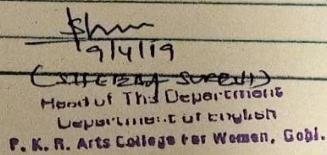 9/4/19
Head of The Department
Department of English
P. K. R. Arts College For Women, Gobi.